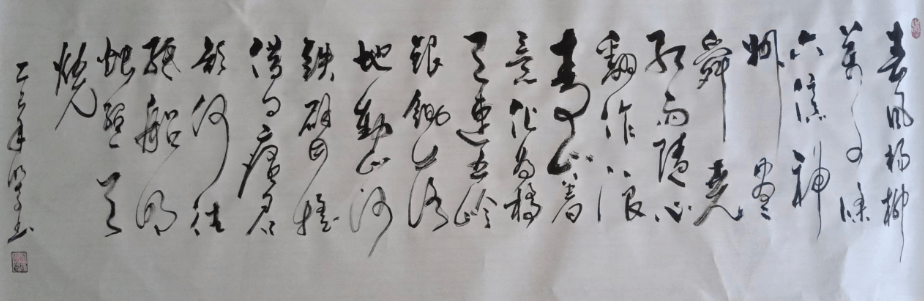 春风杨柳
万千条
六億神
州盡
舜尧
红雨随心
翻作浪
青山着
意化为橋
天連五岭
銀鋤落
地动三河
鉄臂摇
借问瘟君
欲何往
纸船明
烛照天
烧